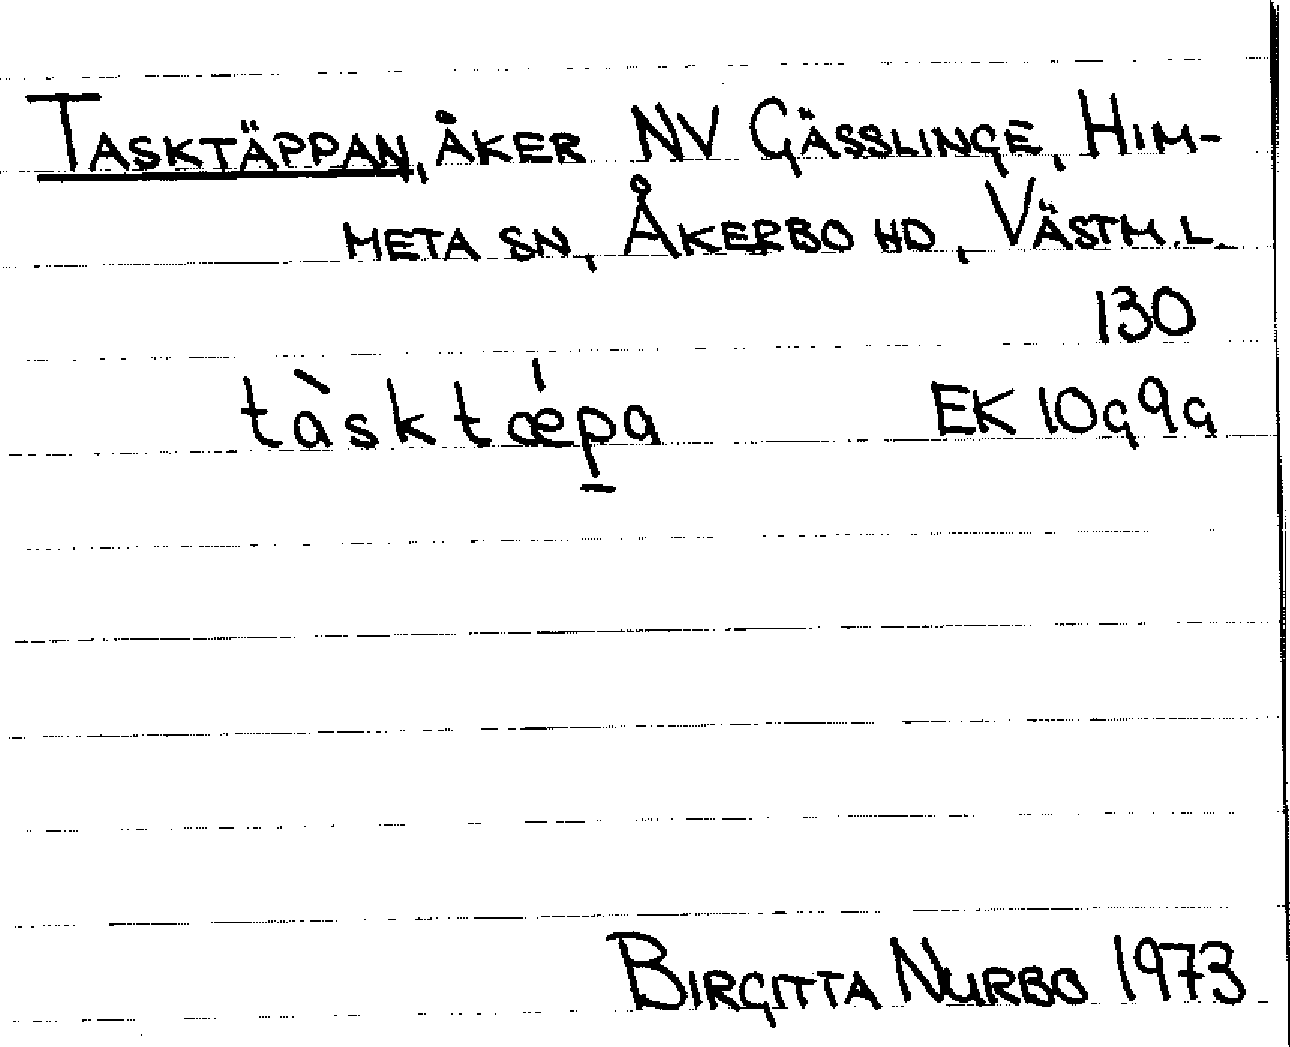 TASKTÄPPAN, ÅKER NV GÄSSLINGE, HIM-
META SN, ÅKERBO HD, VÄSTM.L.
130
tàsktǽp̱a EK 10g9g
BIRGITTA NURBO 1973